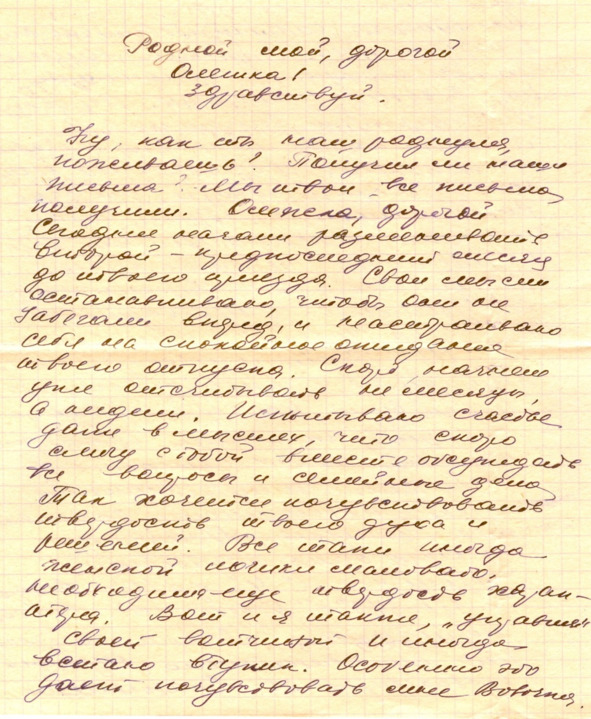 Родной мой, дорогой
Олешка!
Здравствуй.
Ну, как ты там роднуля,
поживаешь? Получил ли наши
письма? Мы твои все письма
получили. Олежка, дорогой
Сегодня начали разменивать
второй - предпоследний месяц
до твоего приезда. Свои мысли
останавливаю, чтобы они не
забегали вперед, и настраиваю
себя на спокойное ожидание
твоего отпуска. Скоро начнем
уже отсчитывать не месяцы,
а недели. Испытываю счастье
даже в мыслях, что скоро
смогу с тобой вместе обсуждать
все вопросы и семейные дела
Так хочется почувствовать
твердость твоего духа и
решений. Все таки иногда
женской логики маловато,
необходима еще твердость харак-
тера. Вот и я также, "управляя"
своей вотчиной и иногда
встаю втупик. Особенно это
дает почувствовать мне Вовочка.